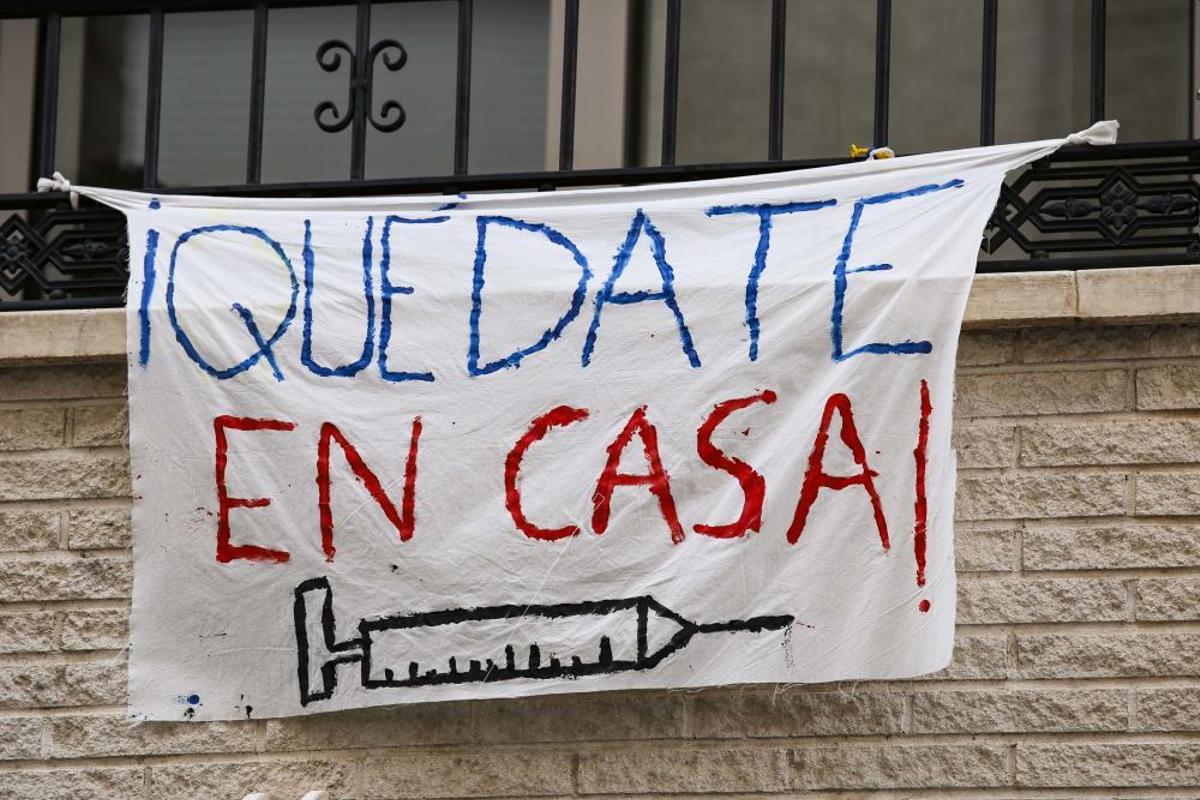 ¡QUÉDATE
EN CASA!